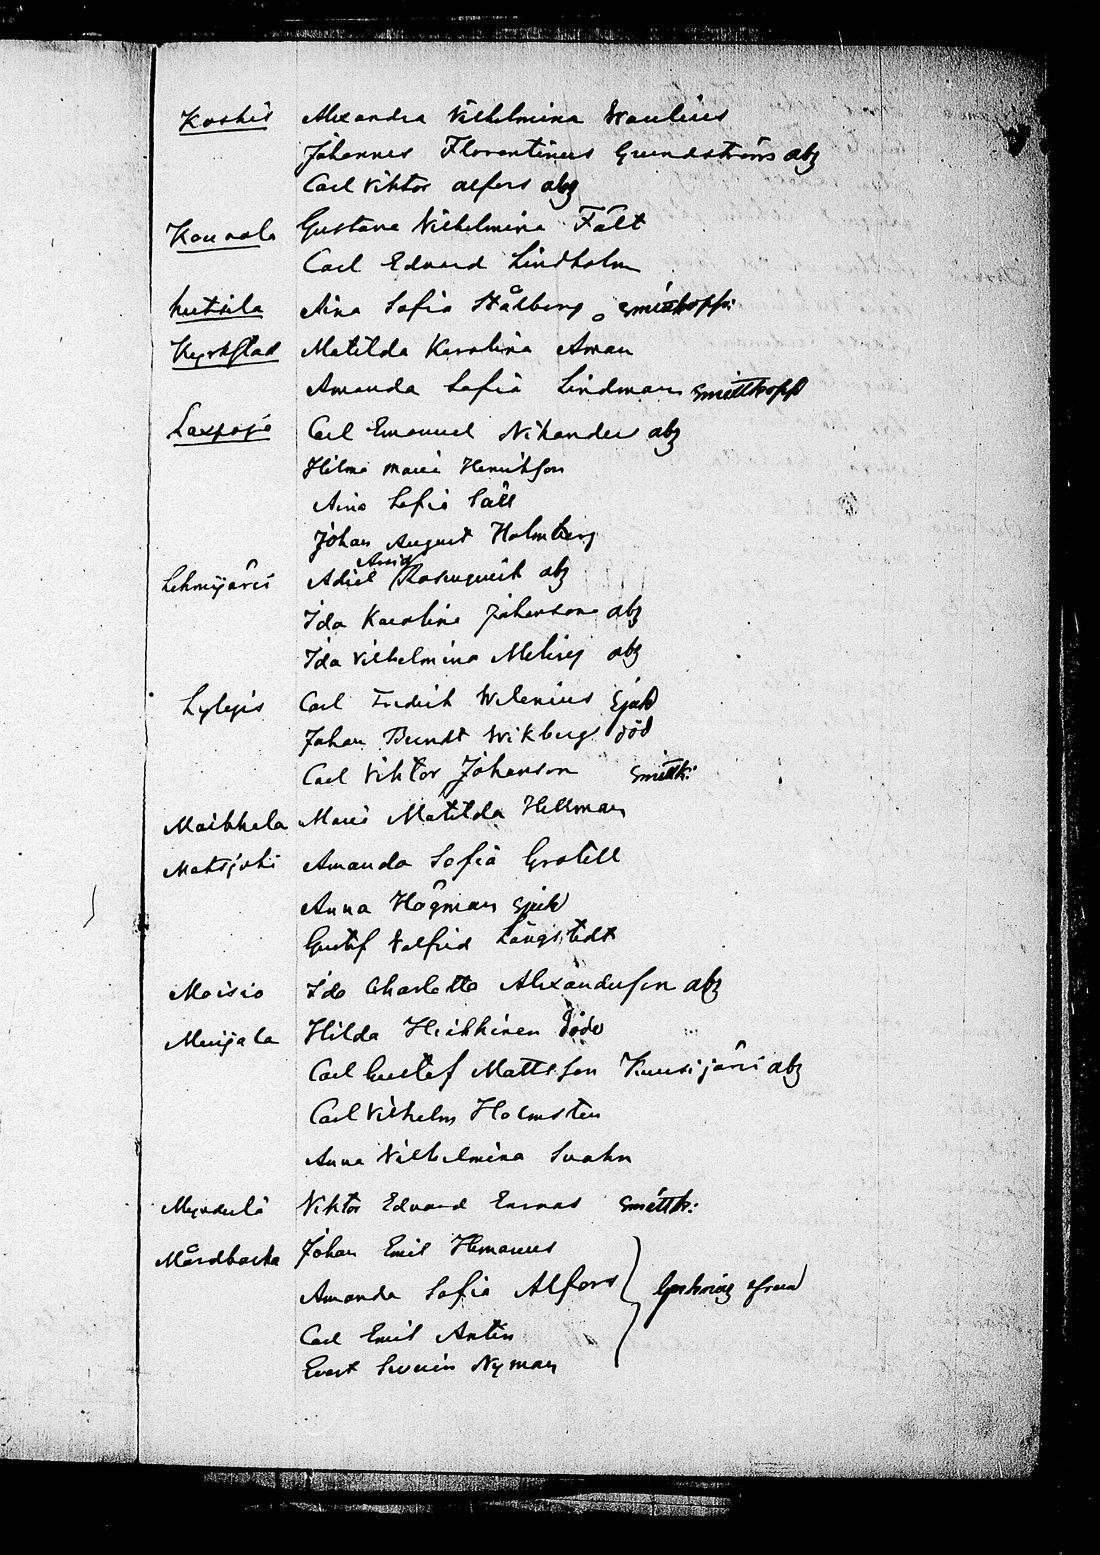 Koskis Alexandra Vilhelmina Waulius
Johannes Florentinus Grundström abg
Carl Viktor alfors abg
Kounola Gustava Vilhelmina Fält
Carl Edvard Lindholm
kutsila Aina Sofia Stålberg smittkopp:
Kyrkstad Matilda Karolina Aman
Amanda Sofia Lindman smittkopp
Laxpojo Carl Emanuel Nikander abg
Hilma Maria Henriksson
Aina Sofia Säll
Johan August Holmberg
Arvid
Lehmijärvi Adiel Rosenqvist abg
Ida Karolina Johanson abg
Ida Vilhelmina Meling abg
Lylyis Carl Fredrik Welenius sjuk
Johan Berndt Wikberg död
Carl Viktor Johanson smittk:
Maikkala Maria Matilda Hellman
Matsjoki Amanda Sofia Grotell
Anna Högman sjuk
Gustaf Valfrid Långstedt
Moisio Ida Charlotta Alexandersson abg
Muijala Hilda Heikkinen död
Carl Gustaf Mattsson Kuusijärvi abg
Carl Vilhelm Holmsten
Anna Vilhelmina Svahn
Viktor Edvard Enroos smittk:
Mårdbacka Johan Emil
Amanda Sofia Alfors
Carl Emil Antin
Evert Severin Nyman